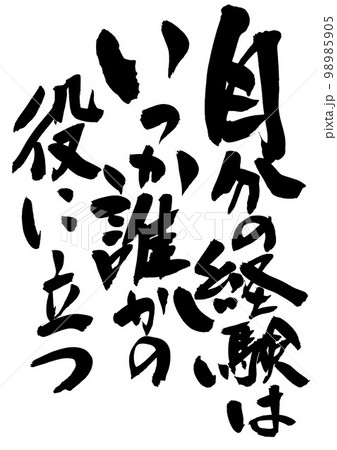 自分の経験は
いつか誰かの
役に立つ
pixta.jp - 98985905
PIXTA